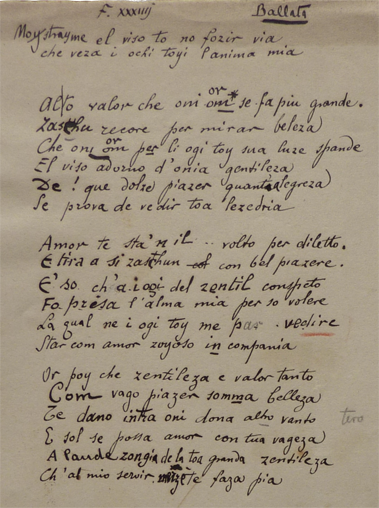 F. XXXIIIJ Ballata
Moystrayme el viso to no fozir via
che veza i ochi toyi l'anima mia
Alto valor che oni om se fa piu grande.
Zaschu recore per mirar beleza
Che ony om per li ogi toy sua luze spande
El viso adorno d'onia gentileza
De! que dolze piazer quanta alegreza
Se prova de vedir toa lezedria
Amor te sta'n il .. volto per diletto.
E tira a si zaschun con bel piazere.
E' so ch'a i ogi del zentil conspeto
Fo presa l'alma mia per so volere
La qual ne i ogi toy me par . vedire
Star com amor zoyoso in compania
Or poy che zentileza e valor tanto
Com vago piazer somma belleza
Te dano intra oni dona altro vanto
E sol se possa amor con tua vageza
A laude zongia de la toa granda zentileza
Ch'al mio servir te faza pia